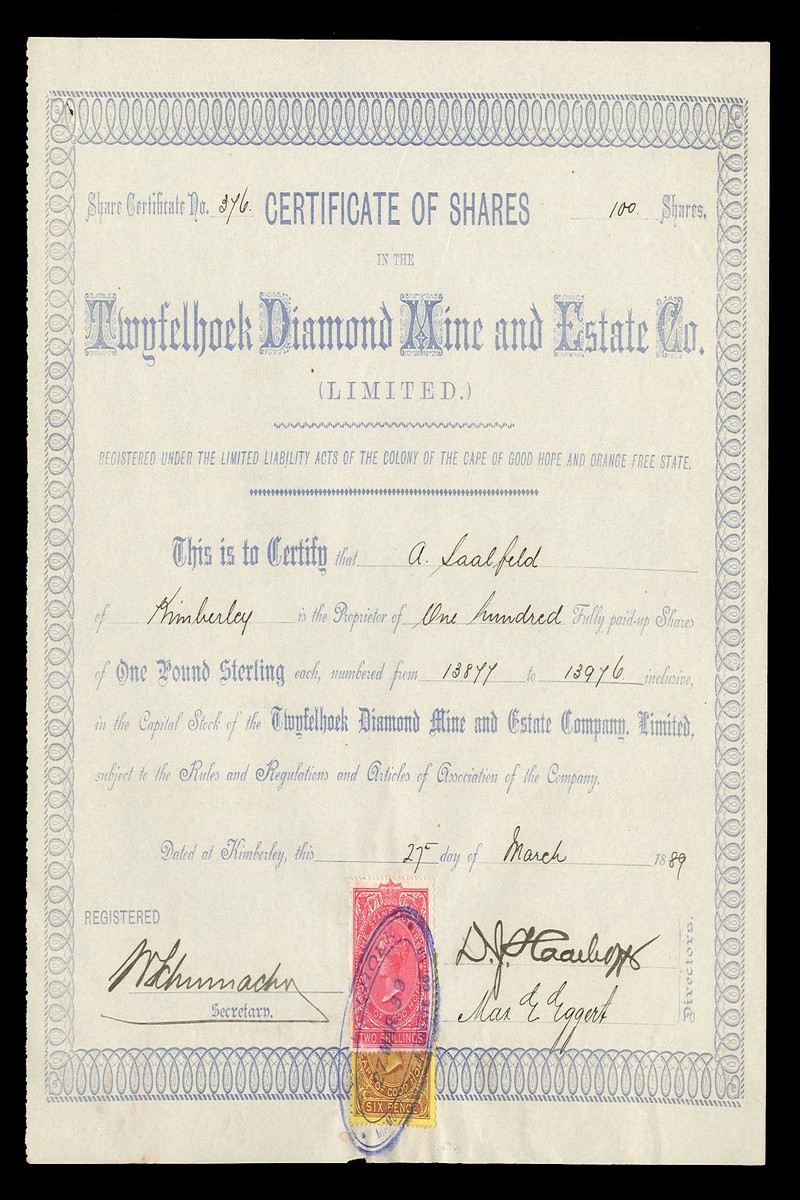 Share Certificate No. 376. CERTIFICATE OF SHARES 100 Shares.
IN THE
Twyfelhoek Diamond Mine and Estate Co.
(LIMITED.)
REGISTERED UNDER THE LIMITED LIABILITY ACTS OF THE COLONY OF THE CAPE OF GOOD HOPE AND ORANGE FREE STATE.
This is to Certify that A. Saalfeld
of Kimberley is the Proprietor of One hundred Fully paid-up Shares
of One Pound Sterling each, numbered from 13877 to 13976 inclusive,
in the Capital Stock of the Twyfelhoek Diamond Mine and Estate Company, Limited,
subject to the Rules and Regulations and Articles of Association of the Company.
Dated at Kimberley, this 27 day of March 1889
REGISTERED
W Schumacher
Secretary.
D. J. Haarhoff
Max E Eggert
Directors.
TWO SHILLINGS
CAPE OF GOOD HOPE
SIX PENCE